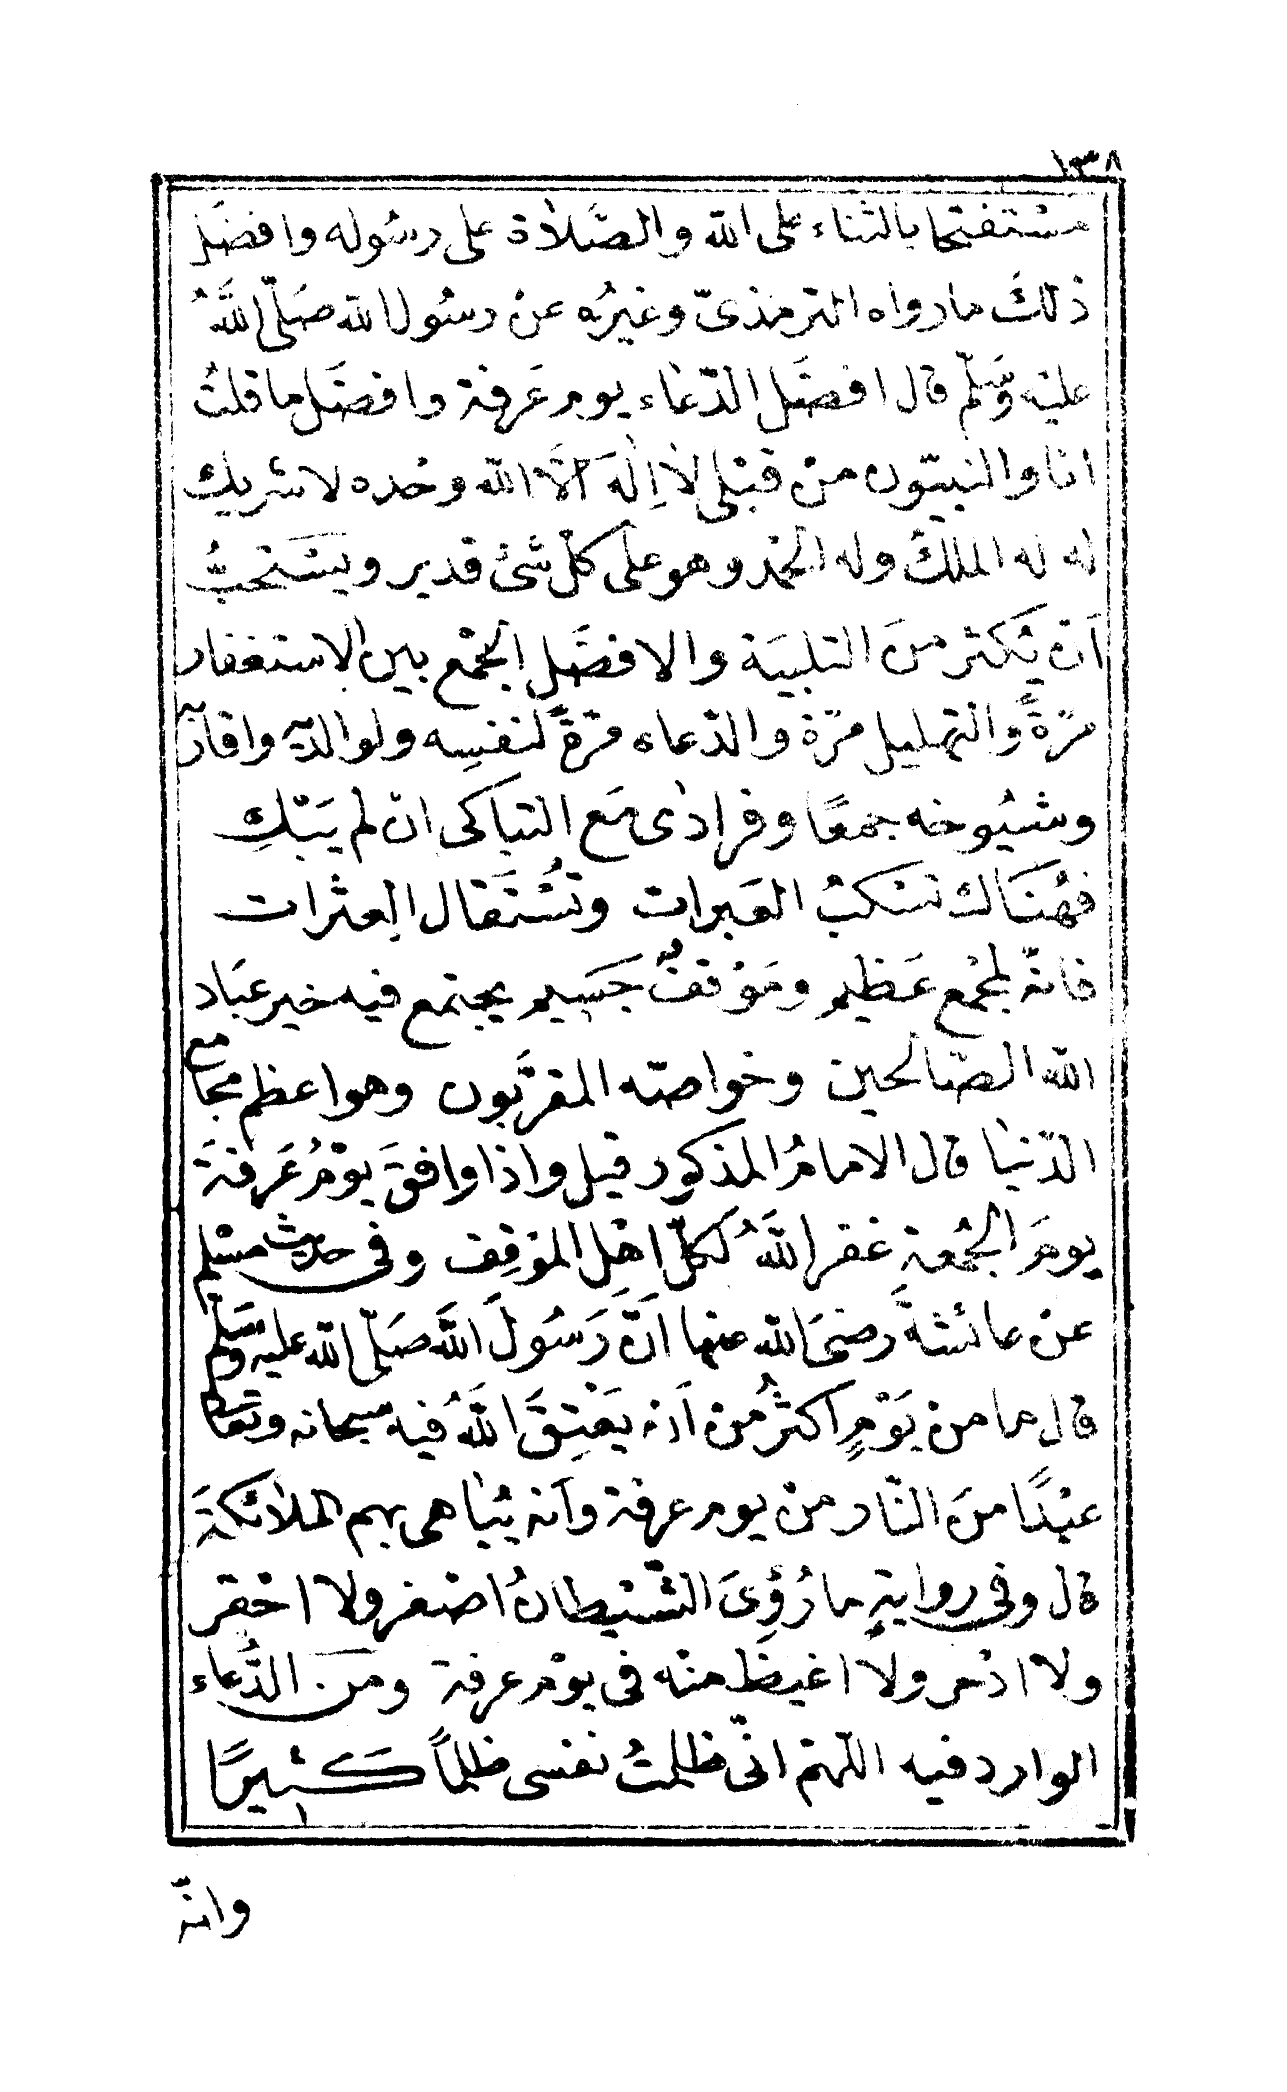 ١٣٨
مسْتفتحا بالثناء على الله والصَّلاة على رسُوله وافضَل
ذلكَ مارواه الترمذىّ وغيرُه عنْ رسُول الله صَلّى اللَّهُ
عليْه وَسَلّم قال افضَل الدّعاء يوم عَرفة وافضَل ما قلتُ
انا والنبيّون منْ قبْلى لاَ اِلٰهَ الاَّ الله وحْده لا شريك
له له الملكُ وله الحمْد وهو على كلّ شئ قدير ويسْتحبُّ
اَن يُكثر منَ التلبيَة والافضَل الجمْع بين الاستغفار
مرّةً والتهليل مرّة والدّعاء مرّةً لنفسِه ولوالديْه واقاربه
وشيُوخه جمعًا وفرادٰى مَع التباكى انْ لم يَبْكِ
فهُنَاك تسْكبُ العَبرات وتُسْتَقال العثرات
فانّه لمجْمع عَظيم ومَوْقفٌ جَسيم يجتمع فيه خير عبَاد
الله الصّالحين وخواصّه المقرّبون وهو اعظم مجامع
الدّنيَا قال الامامُ المذكور قيل واذا وافقَ يوْمُ عَرفةَ
يومَ الجمُعةِ غفر اللَّهُ لكلّ اهْل الموْقِف وفى حديث مسْلم
عنْ عائشةَ رضىَ الله عنها اَنّ رَسُولَ اللَّه صَلّى الله عليه وسَلّم
قال ما من يَوْمٍ اَكثرُ منْ اَنْ يَعْتِقَ اللَّهُ فيه سبحانه وتعَالى
عبْدًا منَ النّار منْ يوم عرفة وَانه يُبَاهى بهم الملائكةَ
قال وفى روايةٍ ما رُؤِىَ الشّيْطانُ اصْغر ولا احْقر
ولا ادْحر ولا اغيظَ منْه فى يوْم عرفة ومنَ الدُّعاء
الوارد فيه اللّهمّ انّى ظلمْتُ نفسى ظلماً كَثيرًا
وانّه